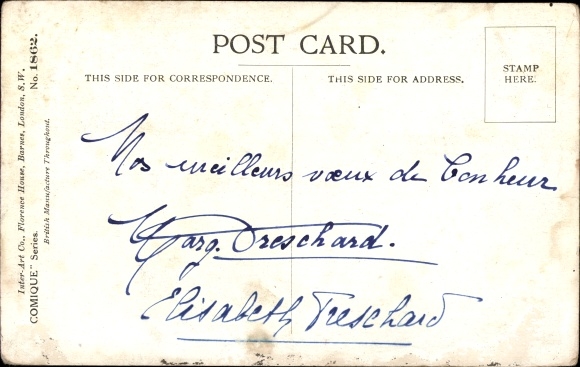 POST CARD.
THIS SIDE FOR CORRESPONDENCE.
THIS SIDE FOR ADDRESS.
STAMP
HERE.
Inter-Art Co., Florence House, Barnes, London, S.W.
"COMIQUE" Series. No. 1862.
British Manufacture Throughout.
Nos meilleurs vœux de bonheur
Marg. Treschard.
Elisabeth Treschard